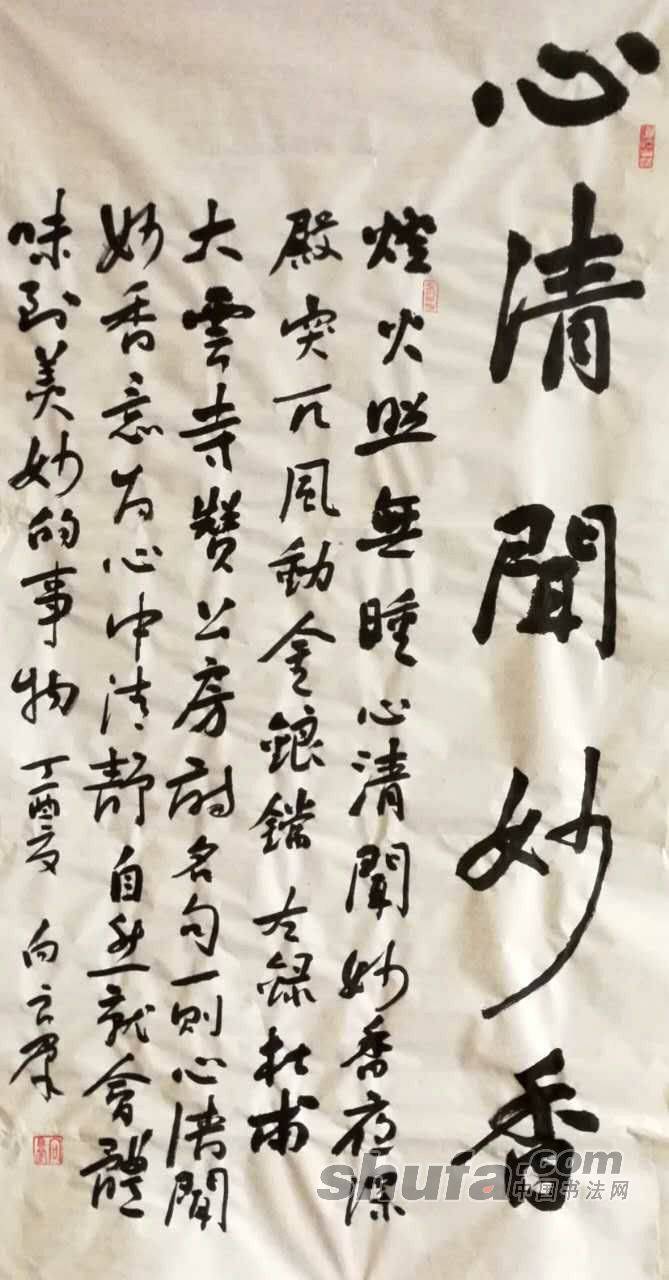 心清聞妙香
燈火照無睡心清聞妙香夜深
殿突兀風動金鋃鐺右錄杜甫
大雲寺贊公房詩名句一則心清聞
妙香意为心中清靜自然就會體
味到美妙的事物 丁酉夏 向云
shufa.com
中国书法网